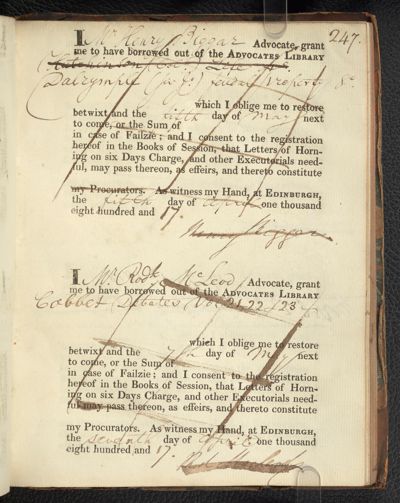 247.
I Mr Henry Biggar Advocate, grant
me to have borrowed out of the ADVOCATES LIBRARY
Hutchinson
Dalrymple Feudal Property 8o
which I oblige me to restore
betwixt and the fifth day of May next
to come, or the Sum of
in case of Failzie; and I consent to the registration
hereof in the Books of Session, that Letters of Horn-
ing on six Days Charge, and other Executorials need-
ful, may pass thereon, as effeirs, and thereto constitute
my Procurators. As witness my Hand, at EDINBURGH,
the fifth day of April one thousand
eight hundred and 17.
Henry Biggar
I Mr Rodk McLeod Advocate, grant
me to have borrowed out of the ADVOCATES LIBRARY
Cobbet Debates Vol 21 22 & 23
which I oblige me to restore
betwixt and the 7th day of May next
to come, or the Sum of
in case of Failzie; and I consent to the registration
hereof in the Books of Session, that Letters of Horn-
ing on six Days Charge, and other Executorials need-
ful may pass thereon, as effeirs, and thereto constitute
my Procurators. As witness my Hand, at EDINBURGH,
the seventh day of April one thousand
eight hundred and 17.